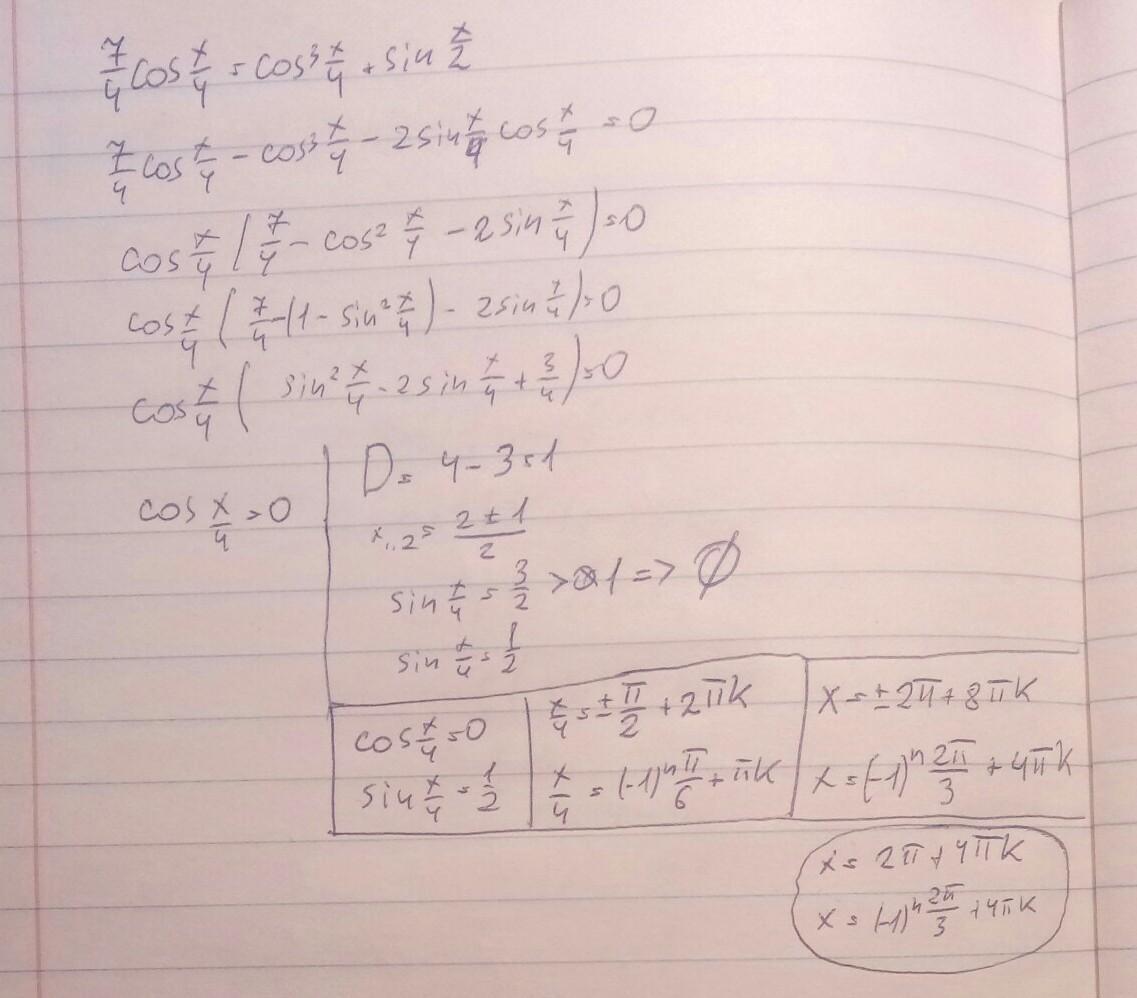 7/4 cos x/4 = cos³ x/4 + sin x/2
7/4 cos x/4 - cos³ x/4 - 2 sin x/4 cos x/4 = 0
cos x/4 (7/4 - cos² x/4 - 2 sin x/4) = 0
cos x/4 (7/4 - (1 - sin² x/4) - 2 sin x/4) = 0
cos x/4 (sin² x/4 - 2 sin x/4 + 3/4) = 0
cos x/4 = 0
D = 4 - 3 = 1
x₁,₂ = (2 ± 1)/2
sin x/4 = 3/2 > 1 => ∅
sin x/4 = 1/2
cos x/4 = 0
sin x/4 = 1/2
x/4 = ± π/2 + 2πk
x/4 = (-1)ⁿ π/6 + πk
x = ± 2π + 8πk
x = (-1)ⁿ 2π/3 + 4πk
x = 2π + 4πk
x = (-1)ⁿ 2π/3 + 4πk